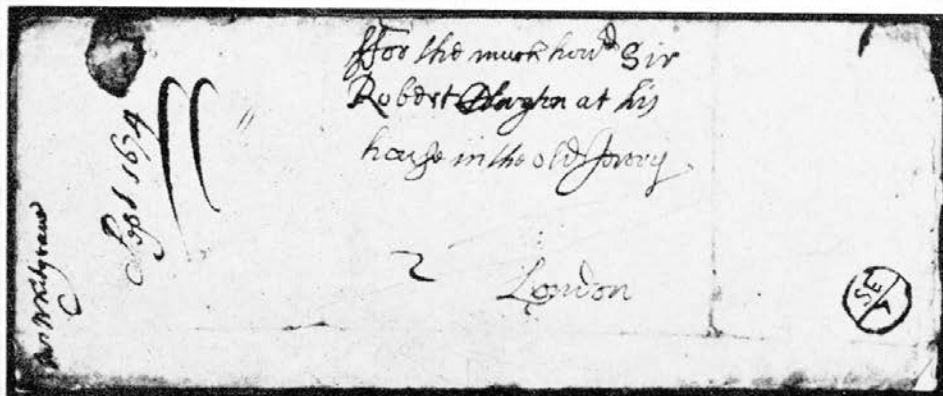 ffor the much hond Sir
Robert Clayton at his
house in the old Jewry
2
London
Sept 1674
SE